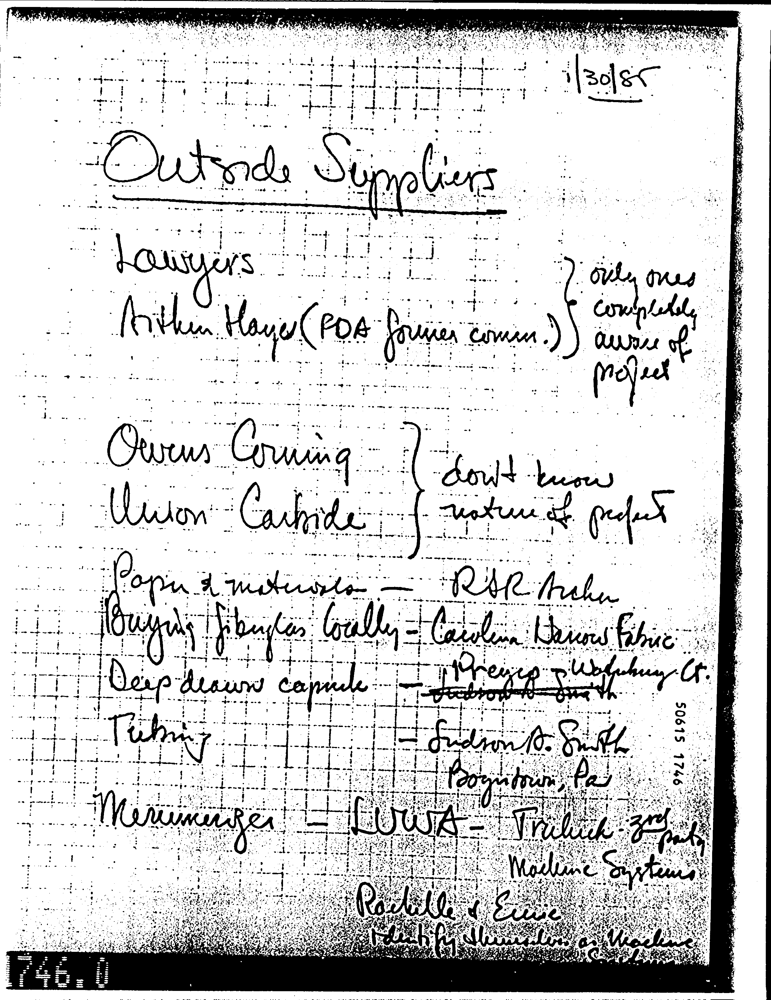 1/30/85
Outside Suppliers
Lawyers
Arthur Hayes (FDA former comm.)
only ones
completely
aware of
project
Owens Corning
Union Carbide
don't know
nature of project
Paper & materials — RJR Archer
Buying fiberglas locally - Carolina Narrow Fabric
Deep drawn capsule — Judson A. Smith
Ct.
Tubing — Judson A. Smith
Boyntown, Pa
50615 1746
LUWA - 3rd party
Machine Systems
Rochelle & Ernie
identify themselves as Machine
Systems
1746.0